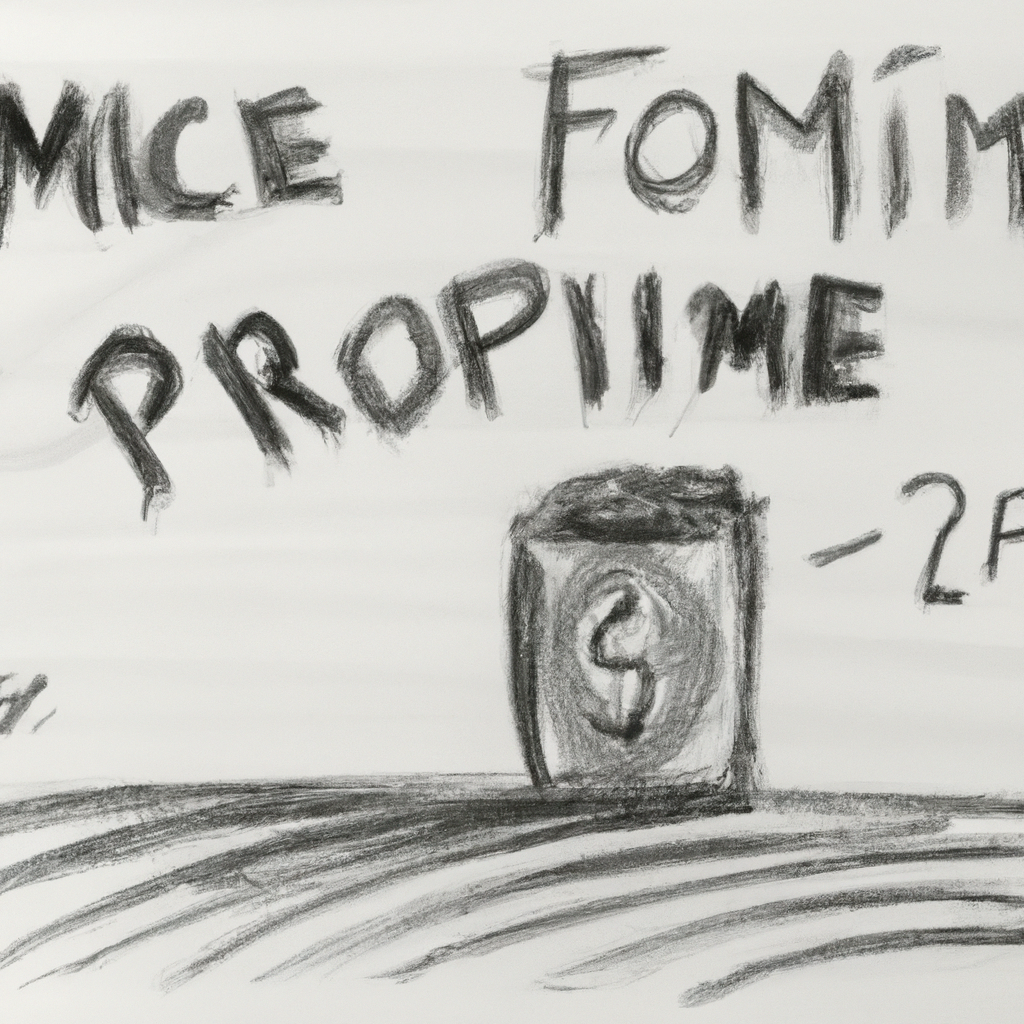 MICE FOMIM
PROPIIME
-2A
$